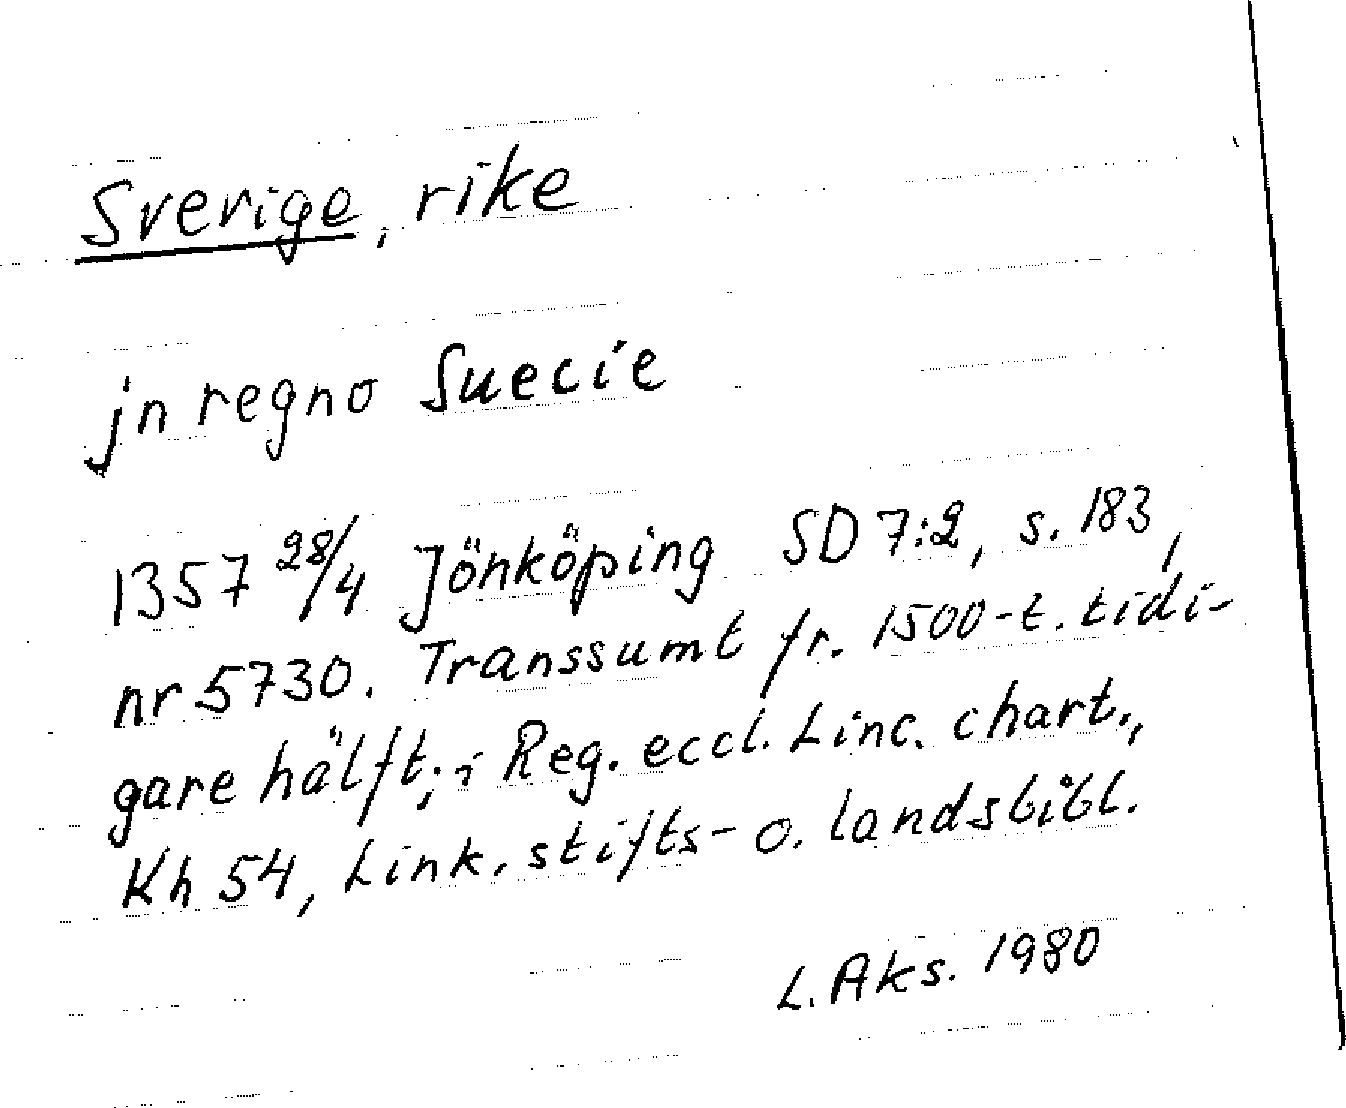 Sverige, rike
jn regno Suecie
1357 28/4 Jönköping SD 7:2, s. 183,
nr 5730. Transsumt fr. 1500-t. tidi-
gare hälft; i Reg. eccl. Linc. chart.,
Kh 54, Link. stifts- o. landsbibl.
L. Aks. 1980